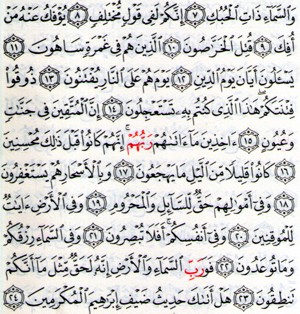 وَالسَّمَآءِ ذَاتِ الْحُبُكِ ﴿٧﴾ إِنَّكُمْ لَفِى قَوْلٍ مُّخْتَلِفٍ ﴿٨﴾ يُؤْفَكُ عَنْهُ مَنْ
أُفِكَ ﴿٩﴾ قُتِلَ الْخَرَّٰصُونَ ﴿١٠﴾ الَّذِينَ هُمْ فِى غَمْرَةٍ سَاهُونَ ﴿١١﴾
يَسْـَٔلُونَ أَيَّانَ يَوْمُ الدِّينِ ﴿١٢﴾ يَوْمَ هُمْ عَلَى النَّارِ يُفْتَنُونَ ﴿١٣﴾ ذُوقُوا۟
فِتْنَتَكُمْ هَٰذَا الَّذِى كُنتُم بِهِۦ تَسْتَعْجِلُونَ ﴿١٤﴾ إِنَّ الْمُتَّقِينَ فِى جَنَّٰتٍ
وَعُيُونٍ ﴿١٥﴾ ءَاخِذِينَ مَآ ءَاتَىٰهُمْ رَبُّهُمْ إِنَّهُمْ كَانُوا۟ قَبْلَ ذَٰلِكَ مُحْسِنِينَ
﴿١٦﴾ كَانُوا۟ قَلِيلًا مِّنَ الَّيْلِ مَا يَهْجَعُونَ ﴿١٧﴾ وَبِالْأَسْحَارِ هُمْ يَسْتَغْفِرُونَ
﴿١٨﴾ وَفِىٓ أَمْوَٰلِهِمْ حَقٌّ لِّلسَّآئِلِ وَالْمَحْرُومِ ﴿١٩﴾ وَفِى الْأَرْضِ ءَايَٰتٌ
لِّلْمُوقِنِينَ ﴿٢٠﴾ وَفِىٓ أَنفُسِكُمْ أَفَلَا تُبْصِرُونَ ﴿٢١﴾ وَفِى السَّمَآءِ رِزْقُكُمْ
وَمَا تُوعَدُونَ ﴿٢٢﴾ فَوَرَبِّ السَّمَآءِ وَالْأَرْضِ إِنَّهُۥ لَحَقٌّ مِّثْلَ مَآ أَنَّكُمْ
تَنطِقُونَ ﴿٢٣﴾ هَلْ أَتَىٰكَ حَدِيثُ ضَيْفِ إِبْرَٰهِيمَ الْمُكْرَمِينَ ﴿٢٤﴾